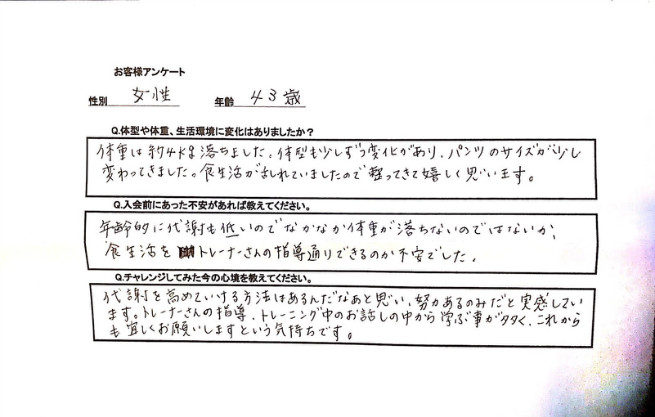 お客様アンケート
性別 女性 年齢 43歳
Q.体型や体重、生活環境に変化はありましたか？
体重は約4kg落ちました。体型も少しずつ変化があり、パンツのサイズが少し
変わってきました。食生活がみだれていましたので整ってきて嬉しく思います。
Q.入会前にあった不安があれば教えてください。
年齢的に代謝も低いのでなかなか体重が落ちないのではないか、
食生活をトレーナーさんの指導通りできるのか不安でした。
Q.チャレンジしてみた今の心境を教えてください。
代謝を高めていける方法はあるんだなあと思い、努力あるのみだと実感してい
ます。トレーナーさんの指導、トレーニング中のお話しの中から学ぶ事が多く、これから
も宜しくお願いしますという気持ちです。